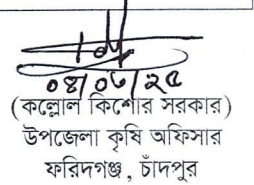 ০৪/০৬/২৫
(কল্লোল কিশোর সরকার)
উপজেলা কৃষি অফিসার
ফরিদগঞ্জ, চাঁদপুর